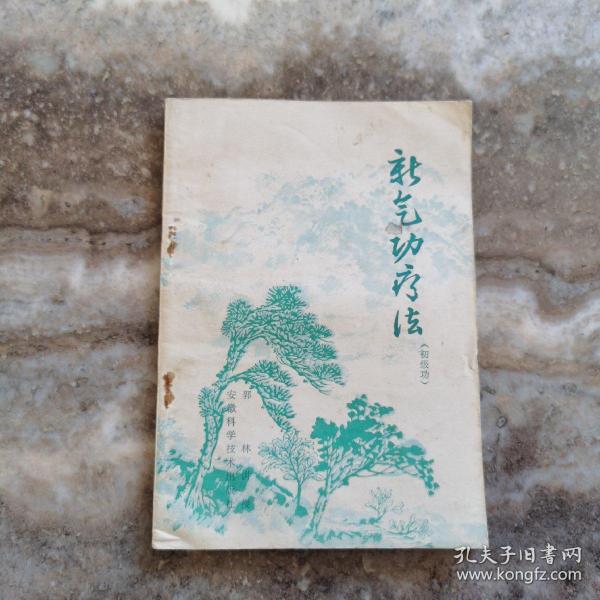 新气功疗法
（初级功）
郭林
安徽科学技术出
孔夫子旧书网
www.kongfz.com